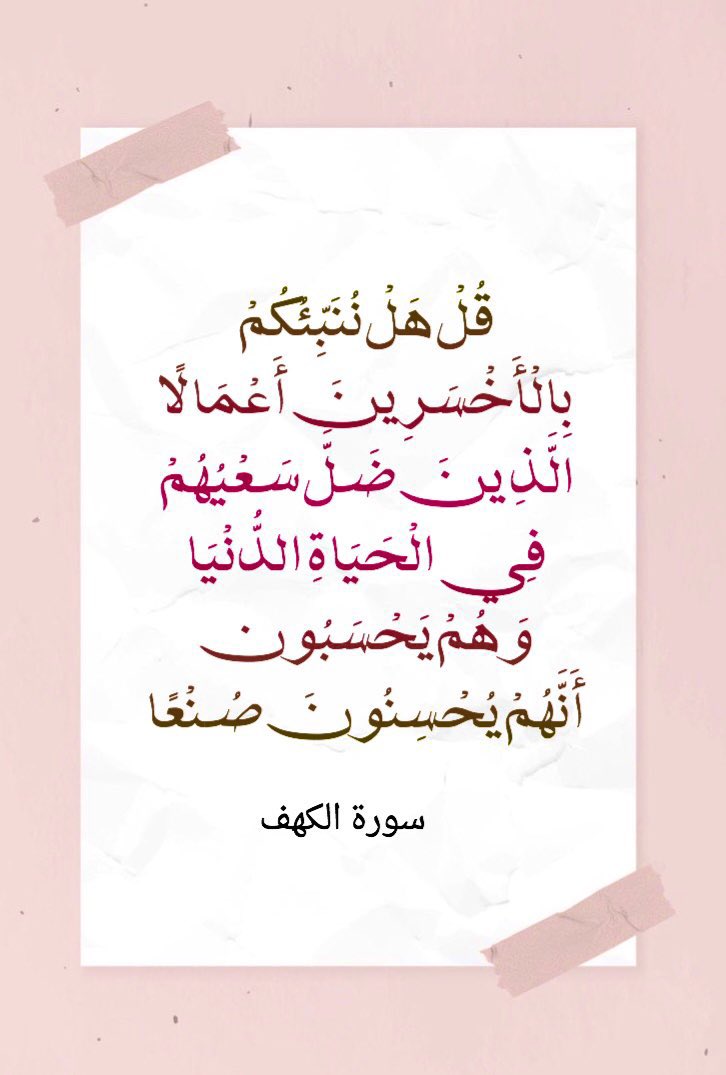 قُلْ هَلْ نُنَبِّئُكُمْ
بِالْأَخْسَرِينَ أَعْمَالًا
الَّذِينَ ضَلَّ سَعْيُهُمْ
فِي الْحَيَاةِ الدُّنْيَا
وَهُمْ يَحْسَبُون
أَنَّهُمْ يُحْسِنُونَ صُنْعًا
سورة الكهف